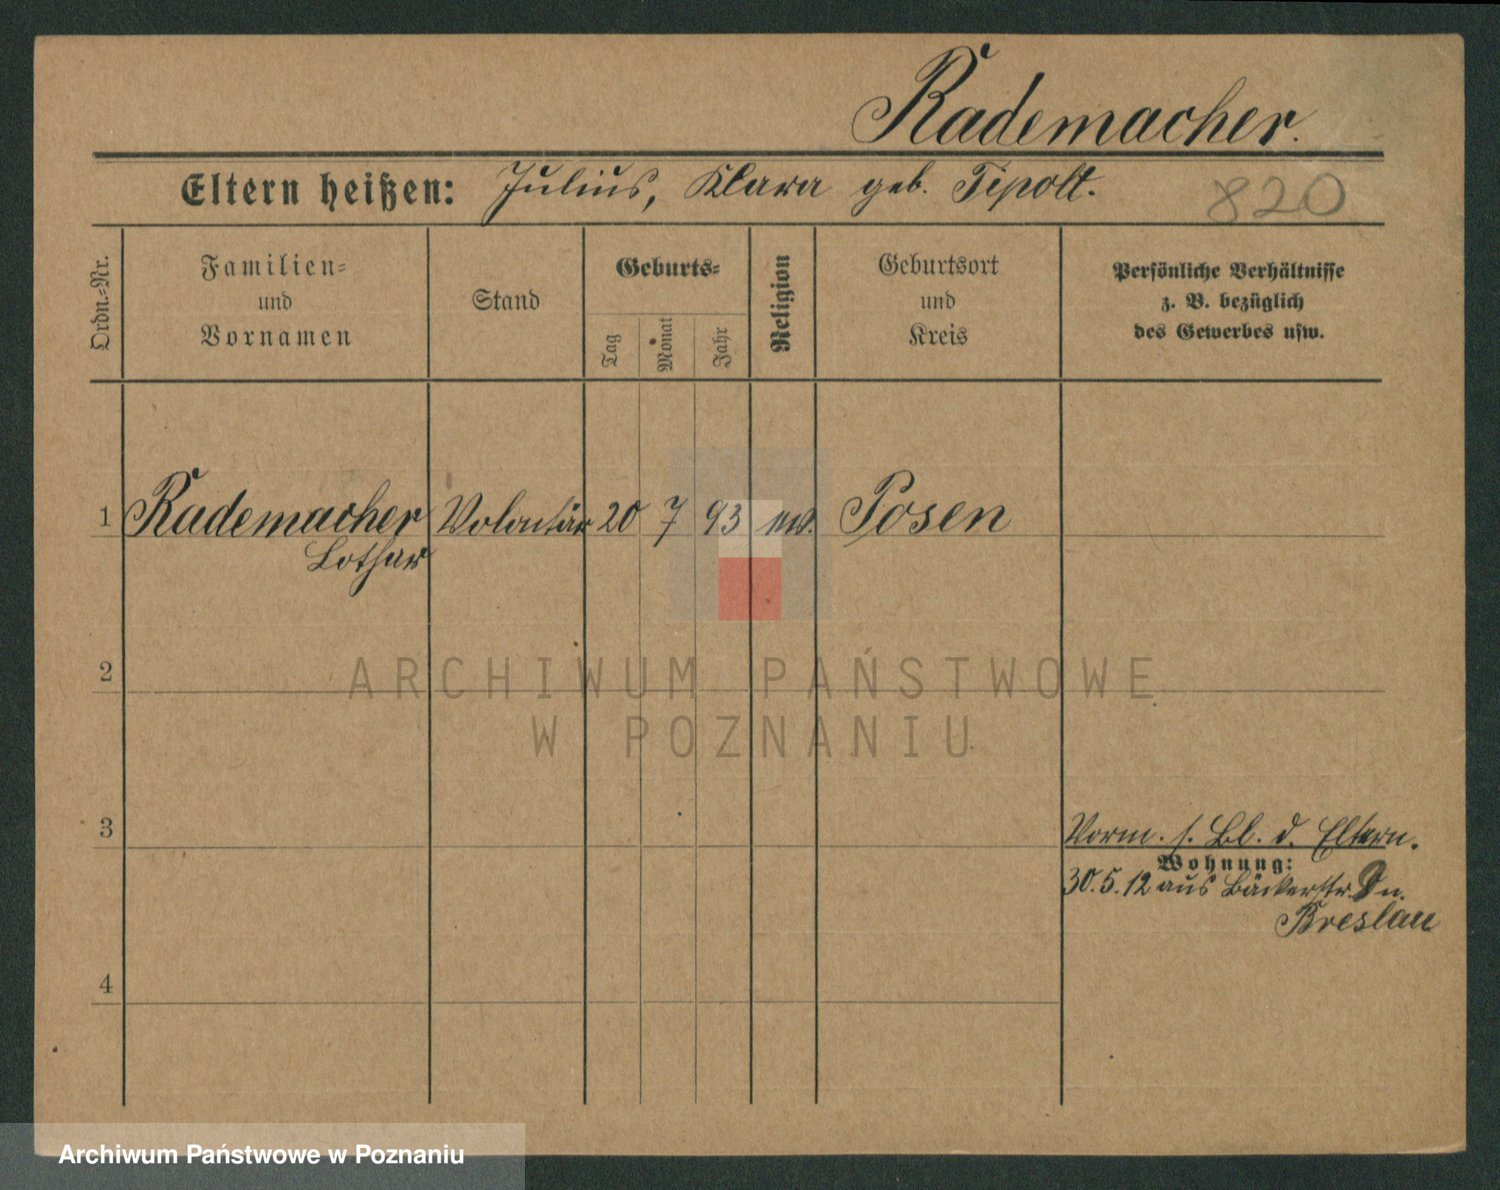 Rademacher.
Eltern heißen: Julius, Klara geb. Tipolt. 820
Ordn.-Nr.
Familien-
und
Vornamen
Stand
Geburts-
Tag
Monat
Jahr
Religion
Geburtsort
und
Kreis
Persönliche Verhältnisse
z. B. bezüglich
des Gewerbes usw.
1 Rademacher Volontär 20 7 93 ew. Posen
Lothar
2
ARCHIWUM PAŃSTWOWE
W POZNANIU
3
Vorm. s. Bl. d. Eltern.
Wohnung:
30.5.12 aus Bäckerstr. n.
Breslau
4
Archiwum Państwowe w Poznaniu